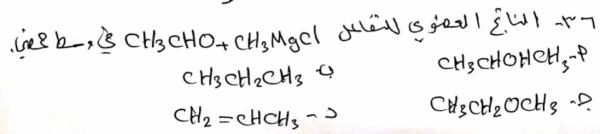 ٣٦- الناتج العضوي للتفاعل CH3CHO + CH3MgCl في وسط حمضي.
P- CH3CHOHCH3 ب- CH3CH2CH3
ج- CH3CH2OCH3 د- CH2=CHCH3